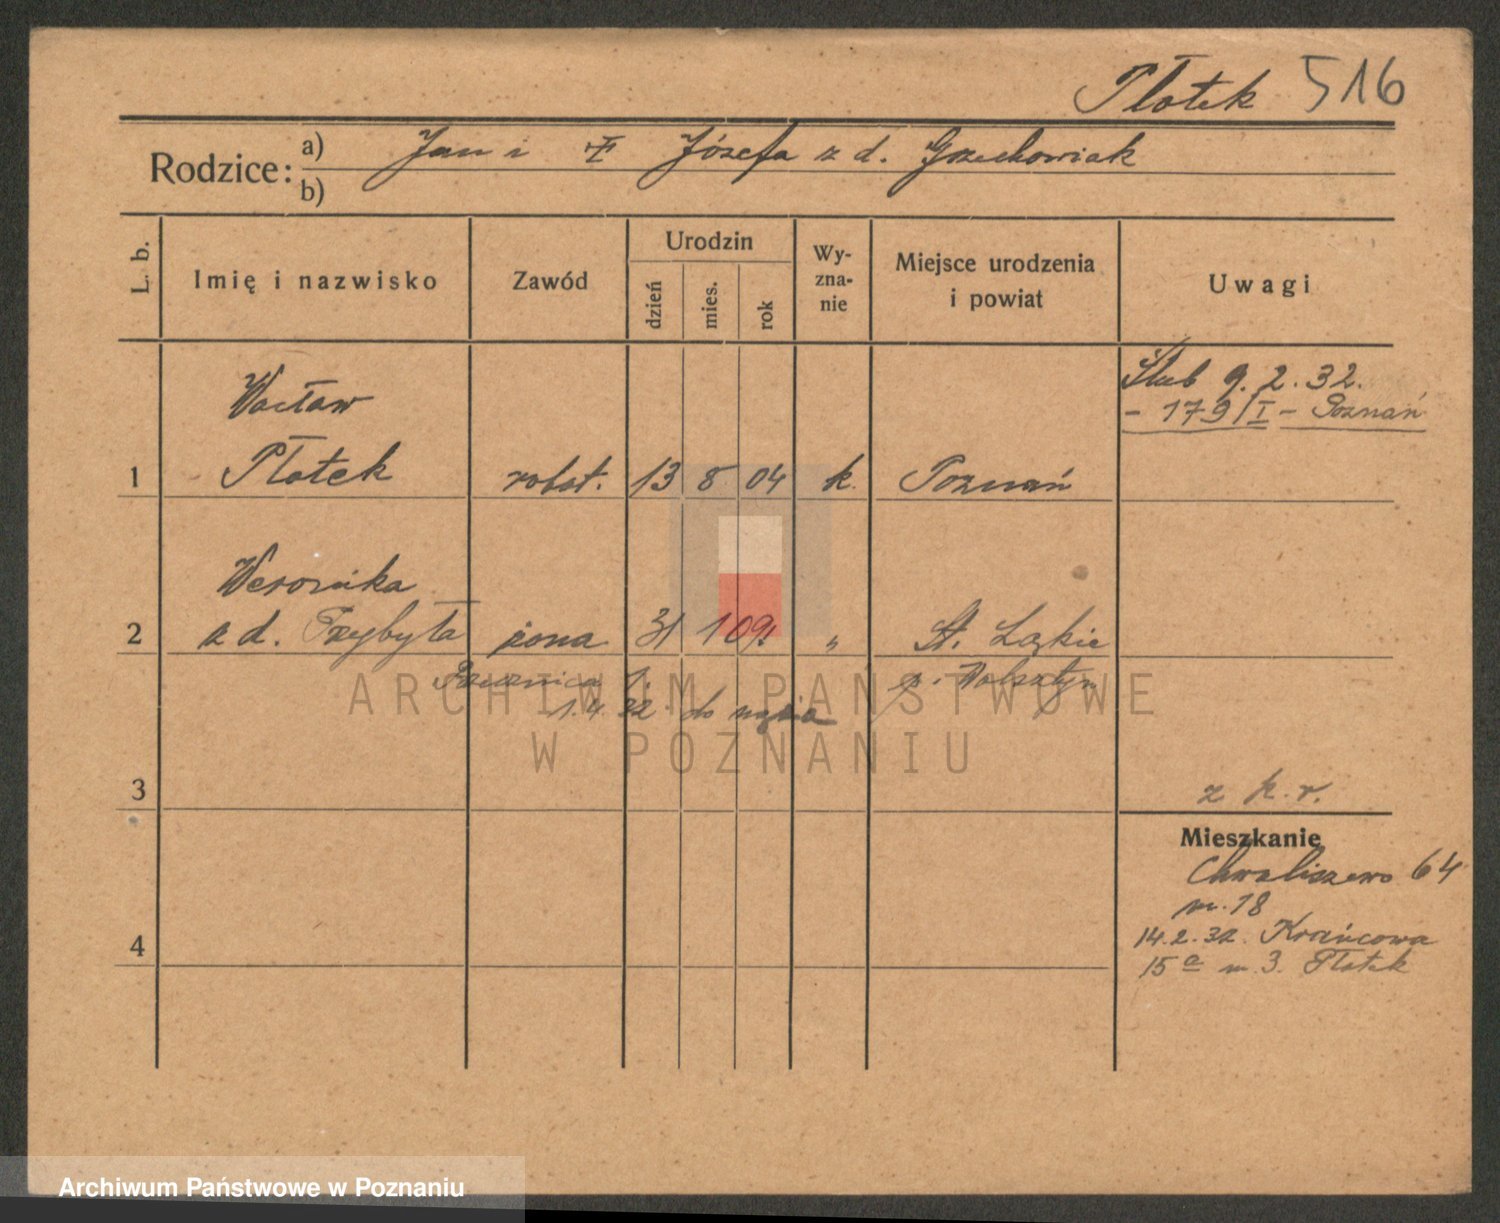 Płotek 516
Rodzice: a) Jan i Józefa z d. Grzechowiak
b)
L. b. Imię i nazwisko Zawód Urodzin Wy-zna-nie Miejsce urodzenia i powiat Uwagi
dzień mies. rok
Ślub 9.2.32.
- 179/I - Poznań
Wacław
1 Płotek robot. 13 8 04 k. Poznań
Weronika
2 z d. Przybyła żona 31 1 09 " St. p. Wolsztyn
1.4.32 do
3 z k. r.
Mieszkanie
Chwaliszewo 64
m. 18
14.2.32. Krańcowa
4 15a m. 3. Płotek
ARCHIWUM PAŃSTWOWE
W POZNANIU
Archiwum Państwowe w Poznaniu